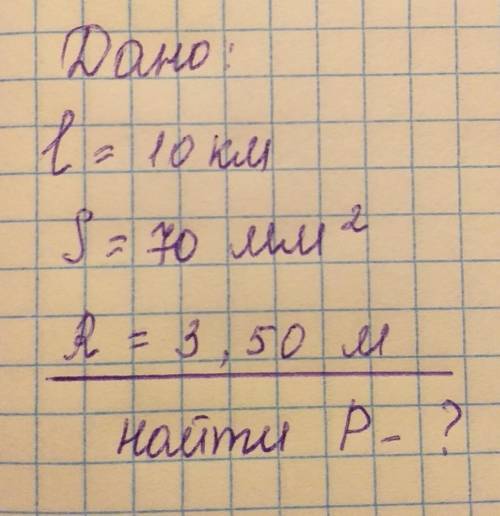 Дано:
l = 10 км
S = 70 мм²
R = 3,50 м
найти P - ?